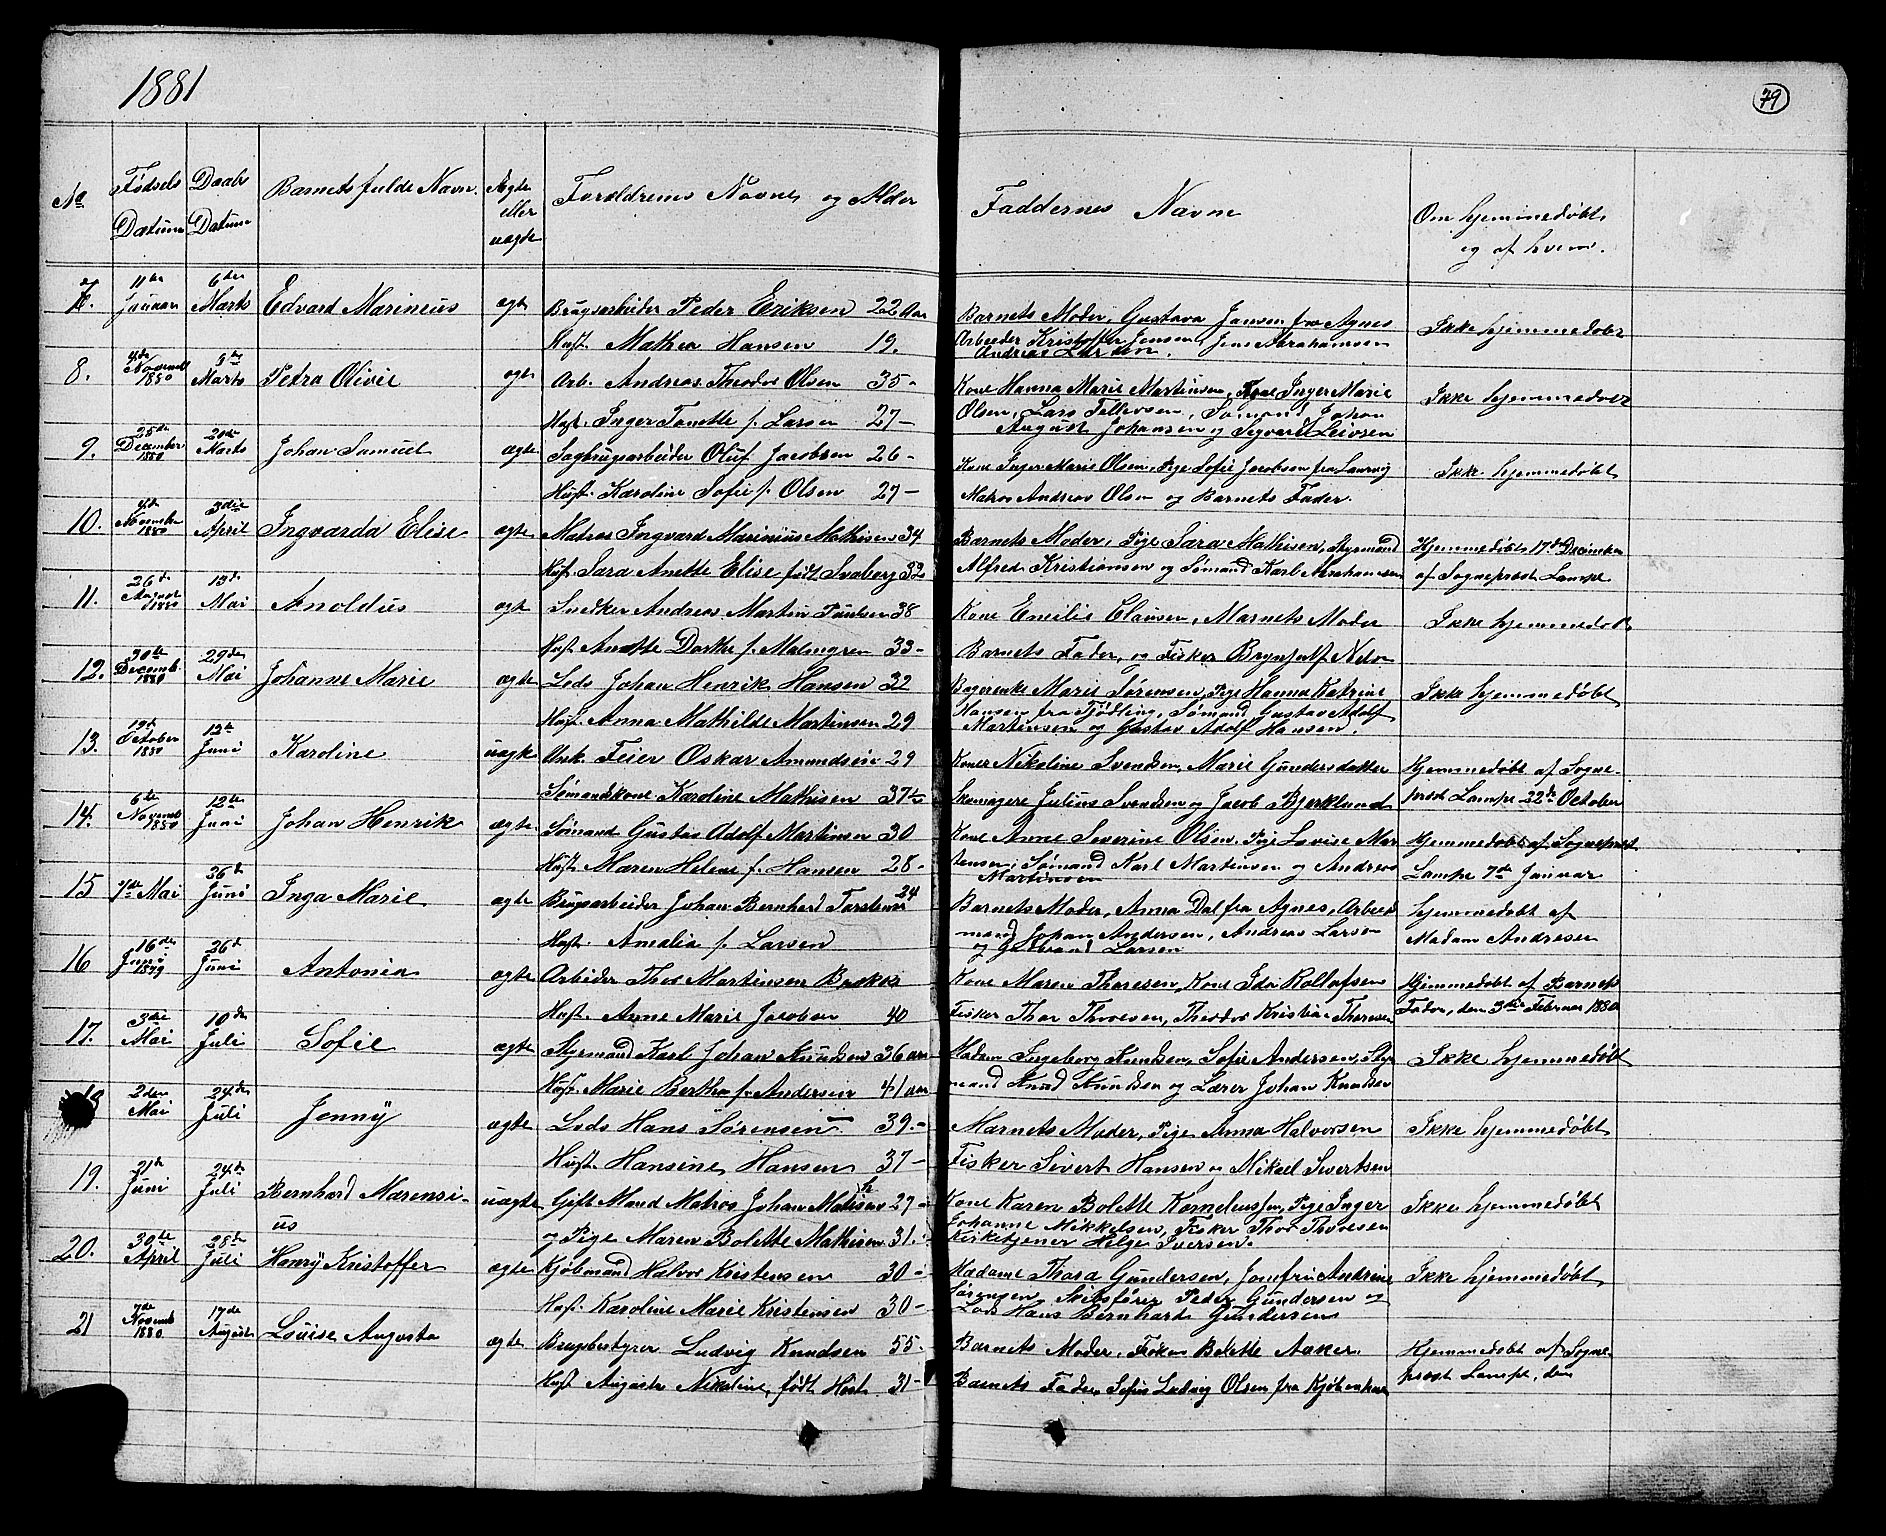 1881
79
No
Fødsels Datum
Daabs Datum
Barnets fulde Navn
Ægte eller uægte
Forældrenes Navne og Alder
Faddernes Navne
Om hjemmedøbt og af hvem.
7. 11te Januar 6te Marts Edvard Marineus ægte Brugsarbeider Peder Eriksen 22 Aar
Hust. Mathea Hansen 19.
Barnets Moder, Gustava Jansen fra Agnes
Arbeider Kristoffer Jensen, Jens Abrahamsen
Andreas Larsen.
Ikke hjemmedøbt
8. Novemb 1880 Marts Petra Olivie ægte Arb. Andreas Theodor Olsen 35-
Hust. Inger Tonette f. Larsen 27-
Kone Hanna Marie Martinsen, Inger Marie
Olsen, Lars Tellevsen, Sømand Johan
August Johansen og Segvard Leivsen
Ikke hjemmedøbt
9. 25de December 1880 20de Marts Johan Samuel ægte Sagbrugsarbeider Oluf Jacobsen 26-
Hust. Karoline Sofie f. Olsen 27-
Kone Inger Marie Olsen, Pige Sofie Jacobsen fra Laurvig
Matros Andreas Olsen og Barnets Fader.
Ikke hjemmedøbt
10. November 1880 3die April Ingvarda Elise ægte Matros Ingvard Marinius Mathisen 34
Hust Sara Anette Elise født Svaberg 32
Barnets Moder, Pige Sara Mathisen, Styrmand
Alfred Kristiansen og Sømand Karl Abrahamsen
Hjemmedøbt 17de December
af Sogneprest Lampe
11. 26de August 1880 Mai Arnoldus ægte Snedker Andreas Martin Paulsen 38
Hust Anette Dorthe f. Malmgren 33-
Kone Emilie Clausen, Marnets Moder
Barnets Fader, og Fisker Brynjulf Nelson
Ikke hjemmedøbt
12. 30te Decemb. 1880 29de Mai Johanne Marie ægte Lods Johan Henrik Hansen 32
Hust. Anna Mathilde Martinsen 29
Marie Sørensen, Pige Hanna Katrine
Hansen fra Tjødling, Sømand Gustav Adolf
Martinsen og Gustav Adolf Hansen.
Ikke hjemmedøbt
13. October 1880 12te Juni Karoline uægte Feier Oskar Amundsen 29
Sømandskone Karoline Mathisen 37
Koner Nikoline Svendsen, Marie Gundersdatter
Skomagere Julius Svendsen og Jacob Bjerklund
Hjemmedøbt af Sogne-
prest Lampe 22de October
14. 6te Novemb 1880 12te Juni Johan Henrik ægte Sømand Gustav Adolf Martinsen 30
Hust. Maren Helene f. Hansen 28-
Kone Anne Severine Olsen, Pige Lovise Mar
tensen, Sømand Karl Martinsen og Andreas
Martinsen
Hjemmedøbt af Sogneprest
Lampe 7de Januar
15 7de Mai 26de Juni Inga Marie ægte Brugsarbeider Johan Bernhard Torstensen 24
Hust. Amalia f. Larsen
Barnets Moder, Anna Dal fra Agnes, Arbeid
mand Johan Andersen, Andreas Larsen
og Larsen
hjemmedøbt af
Madam Andresen
16 16de Juni 1879 26de Juni Antonia ægte Arbeider Thor Martinsen Bakke
Hust. Anne Marie Jacobsen 40
Kone Maren Thoresen, Kone Ida Rollefsen
Fisker Thor Thoresen, Theodor Kristian Thoresen
Hjemmedøbt af Barnets
Fader, den 3die Februar 1880
17. 3die Mai 10de Juli Sofie ægte Styrmand Karl Johan Knudsen 36 aar
Hust. Marie Berthe f. Andersen 41 aar
Madam Ingeborg Knudsen, Sofie Andersen, Styr
mand Knud Knudsen og Lærer Johan Knudsen
Ikke hjemmedøbt
18 2den Mai 24de Juli Jenny ægte Lods Hans Sørensen 39.-
Hust. Hansine Hansen 37-
Marnets Moder, Pige Anna Halvorsen
Fisker Sivert Hansen og Mikael Sivertsen
Ikke hjemmedøbt
19. 21de Juni 24de Juli Bernhard Marensi-
us uægte Gift Mand Matros Johan Mathisen 27-
og Pige Maren Bolette Mathisen 31.-
Kone Karen Bolette Korneliussen, Pige Inger
Johanne Mikkelsen, Fisker Thor Thoresen
Kirketjener Helge Iversen.
Ikke hjemmedøbt
20. 30te April 28de Juli Henry Kristoffer ægte Kjøbmand Halvor Kristensen 30-
Hust. Karoline Marie Kristensen 30-
Madame Thora Gundersen, Jomfru Andrine
Sørensen, Skibsfører Peder Gundersen og
Lods Hans Bernhard Gundersen
Ikke hjemmedøbt
21 7de Novemb 1880 17de August Louise Augusta ægte Brugsbestyrer Ludvig Knudsen 55-
Hust Augusta Nikoline, født Høst 31-
Barnets Moder, Frøken Bolette Aaker
Barnets Fader, Sofus Ludvig Olsen fra Kjøbenhavn
Hjemmedøbt af Sogne-
prest Lampe, den